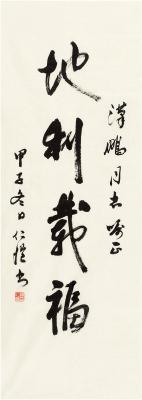 汉鹏同志嘱正
地利载福
甲子冬日仁恺书